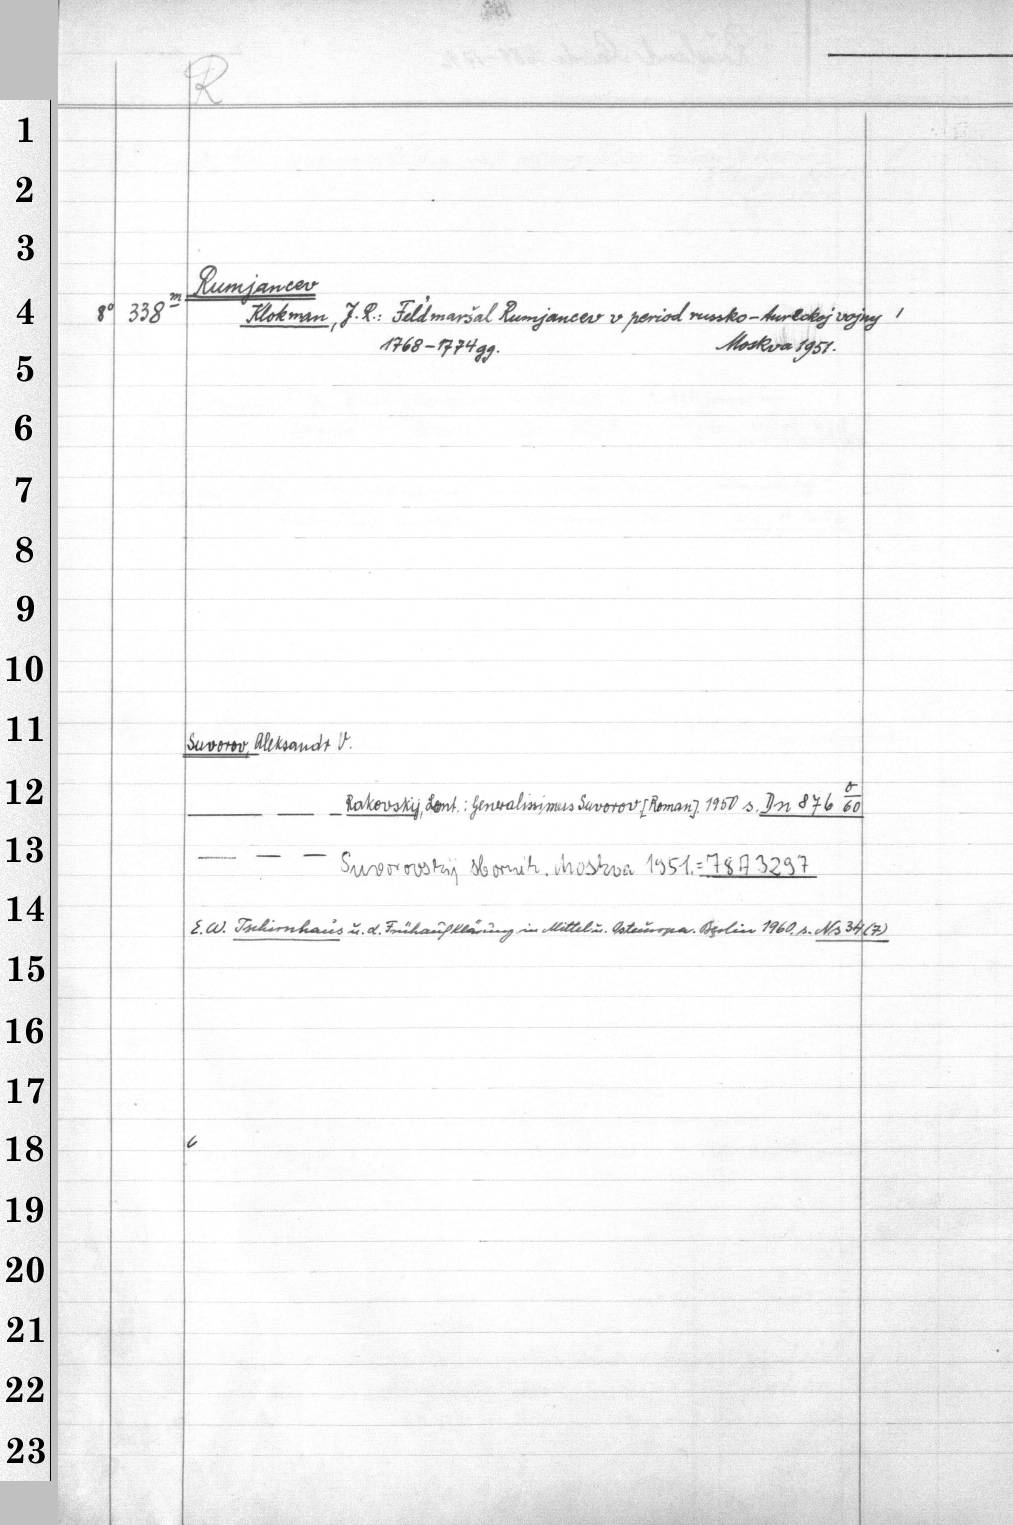 R
1
2
3
Rumjancev
4 8° 338 m Klokman, J. R.: Fel'dmaršal Rumjancev v period russko-tureckoj vojny 1
1768-1774 gg. Moskva 1951.
5
6
7
8
9
10
11 Suvorov, Aleksandr V.
12 — — — Rakovskij, Leont.: Generalissimus Suvorov [Roman]. 1950 s. Dn 876 60
13 — — — Suvorovskij sbornik. Moskva 1951. = 78A3297
14 E. W. Tschirnhaus u. d. Frühaufklärung in Mittel u. Osteuropa. Berlin 1960. s. Ns 34(7)
15
16
17
18
19
20
21
22
23